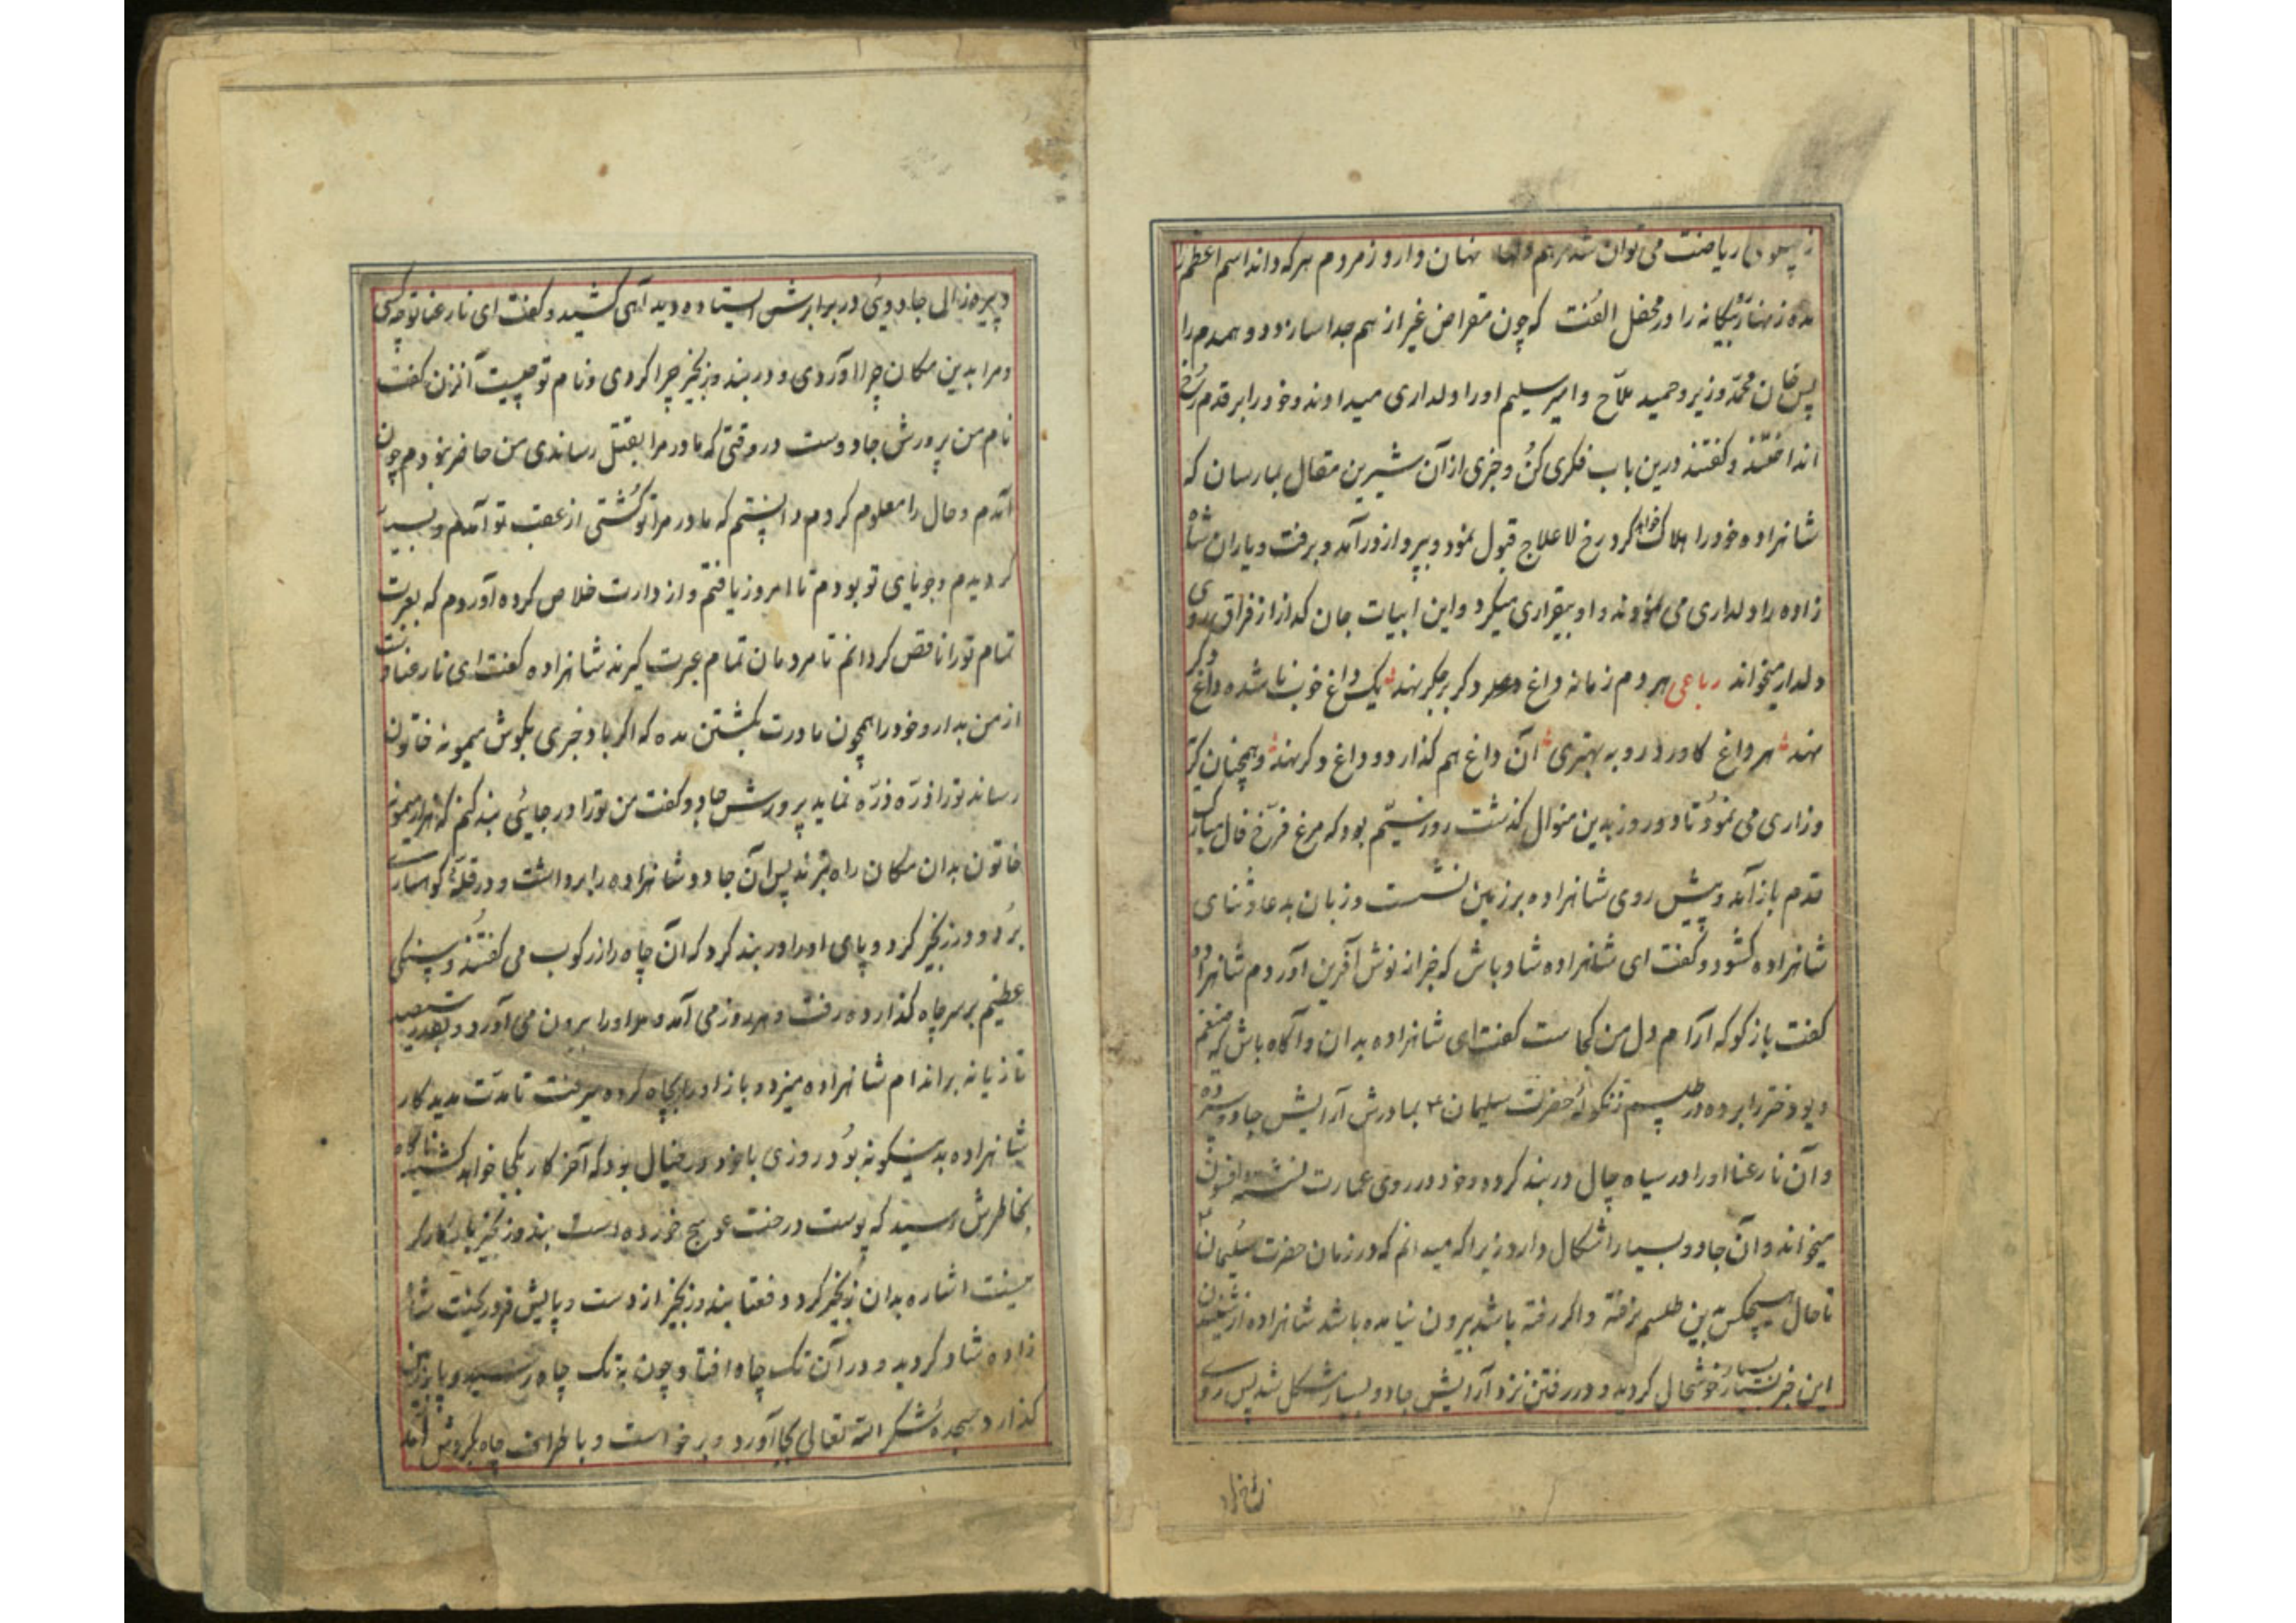 ز پهلوی ریاضت می توان شد مرهم نهان دارد ز مردم هر که داند اسم اعظم را
مده زنهار بیگانه را در محفل الفت که چون مقراض غیر از هم جدا سازد دو همدم را
پس خان محمد وزیر و حمید ملاح و امیر سلیم او را دلداری میدادند و خود را بر قدم رخ
انداختند و گفتند درین باب فکری کن و خبری از آن شیرین مقال بما رسان که
شاهزاده خود را هلاک خواهد کرد رخ لاعلاج قبول نمود و بپرواز درآمد و برفت و یاران شاه
زاده را دلداری می نمودند و او بیقراری میکرد و این ابیات جان گداز از فراق روی
دلدار میخواند رباعی هر دم زمانه داغ دگر بر جگر نهد یک داغ خوب ناشده داغ دگر
نهد هر داغ کاورد رو به بهتری آن داغ هم گذارد و داغ دگر نهد و همچنان گریه
و زاری می نمود تا دو روز بدین منوال گذشت روز سیم بود که مرغ فرخ فال مبارک
قدم باز آمد و پیش روی شاهزاده بر زمین نشست و زبان بدعا و ثنای
شاهزاده گشود و گفت ای شاهزاده شاد باش که خبر از نوش آفرین آوردم شاهزاده
گفت بازگو که آرام دل من کجاست گفت ای شاهزاده بدان و آگاه باش که
دیو دختر را برده در طلسم زنگوله حضرت سلیمان ع بمادرش آرایش جادو سپرده
و آن نارعنا او را در سیاه چال دربند کرده و خود در روی عمارت نشسته و افسون
میخواند و آن جادو بسیار اشکال دارد زیرا که میدانم که در زمان حضرت سلیمان ع
تا حال هیچکس بدین طلسم نرفته و اگر رفته باشد بیرون نیامده باشد شاهزاده از شنیدن
این خبر بسیار خوشحال گردید و در رفتن نزد آرایش جادو بسیار مشکل شد پس روی
و پیره زالی جادویی در برابرش ایستاده دید آهی کشید و گفت ای نارعنا تو چه کسی
و مرا بدین مکان چرا آوردی و در بند و زنجیر چرا کردی و نام تو چیست آن زن گفت
نام من پرورش جادوست در وقتی که مادر مرا بقتل رساندی من حاضر نبودم چون
آمدم و حال را معلوم کردم دانستم که مادر مرا تو کشتی از عقب تو آمدم و بسیار
گردیدم و جویای تو بودم تا امروز یافتم و از دارت خلاص کرده آوردم که بعبرت
تمام تو را ناقص گردانم تا مردمان تمام عبرت گیرند شاهزاده گفت ای نارعنا دست
از من بدار و خود را همچون مادرت بکشتن مده که اگر باد خبری بگوش میمونه خاتون
رساند تو را ذره ذره نماید پرورش جادو گفت من تو را در جایی بند کنم که هزار میمونه
خاتون بدان مکان راه نبرند پس آن جادو شاهزاده را برداشت و در قله کوهساری
برد و در زنجیر کرد و پای او را در بند کرد که آن چاه را زرکوب می گفتند و سنگی
عظیم بر سر چاه گذارده رفت و هر روز می آمد و او را بیرون می آورد و بقدر سیصد
تازیانه بر اندام شاهزاده میزد و باز او را بچاه کرده میرفت تا مدت مدید کار
شاهزاده بدینگونه بود روزی با خود در خیال بود که آخر کار بکجا خواهد کشید ناگاه
بخاطرش رسید که پوست درخت عوسج خورده است بند و زنجیر باو کارگر
نیست اشاره بدان زنجیر کرد دفعتا بند و زنجیر از دست و پایش فرو ریخت شاه
زاده شاد گردید و در آن تک چاه افتاد و چون به تک چاه رسید و پا بر زمین
گذارد سجده شکر الله تعالی بجا آورد و برخاست و باطراف چاه بگردش آمد